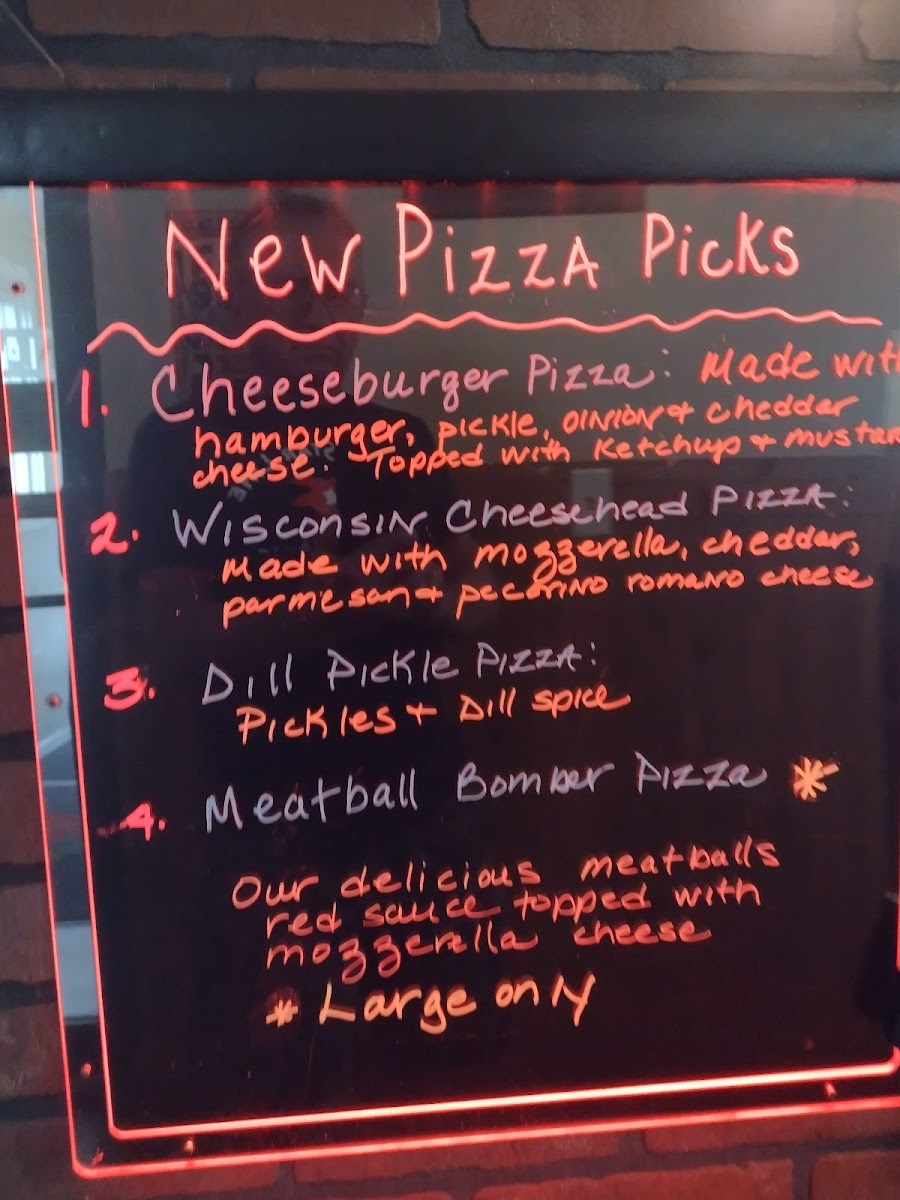 New Pizza Picks
1. Cheeseburger Pizza: Made with
hamburger, pickle, oinion & cheddar
cheese. Topped with Ketchup & mustar
2. Wisconsin Cheesehead Pizza:
Made with mozzerella, cheddar,
parmesan & pecorino romano cheese
3. Dill Pickle Pizza:
Pickles & Dill spice
4. Meatball Bomber Pizza *
Our delicious meatballs
red sauce topped with
mozzerella cheese
* Large only